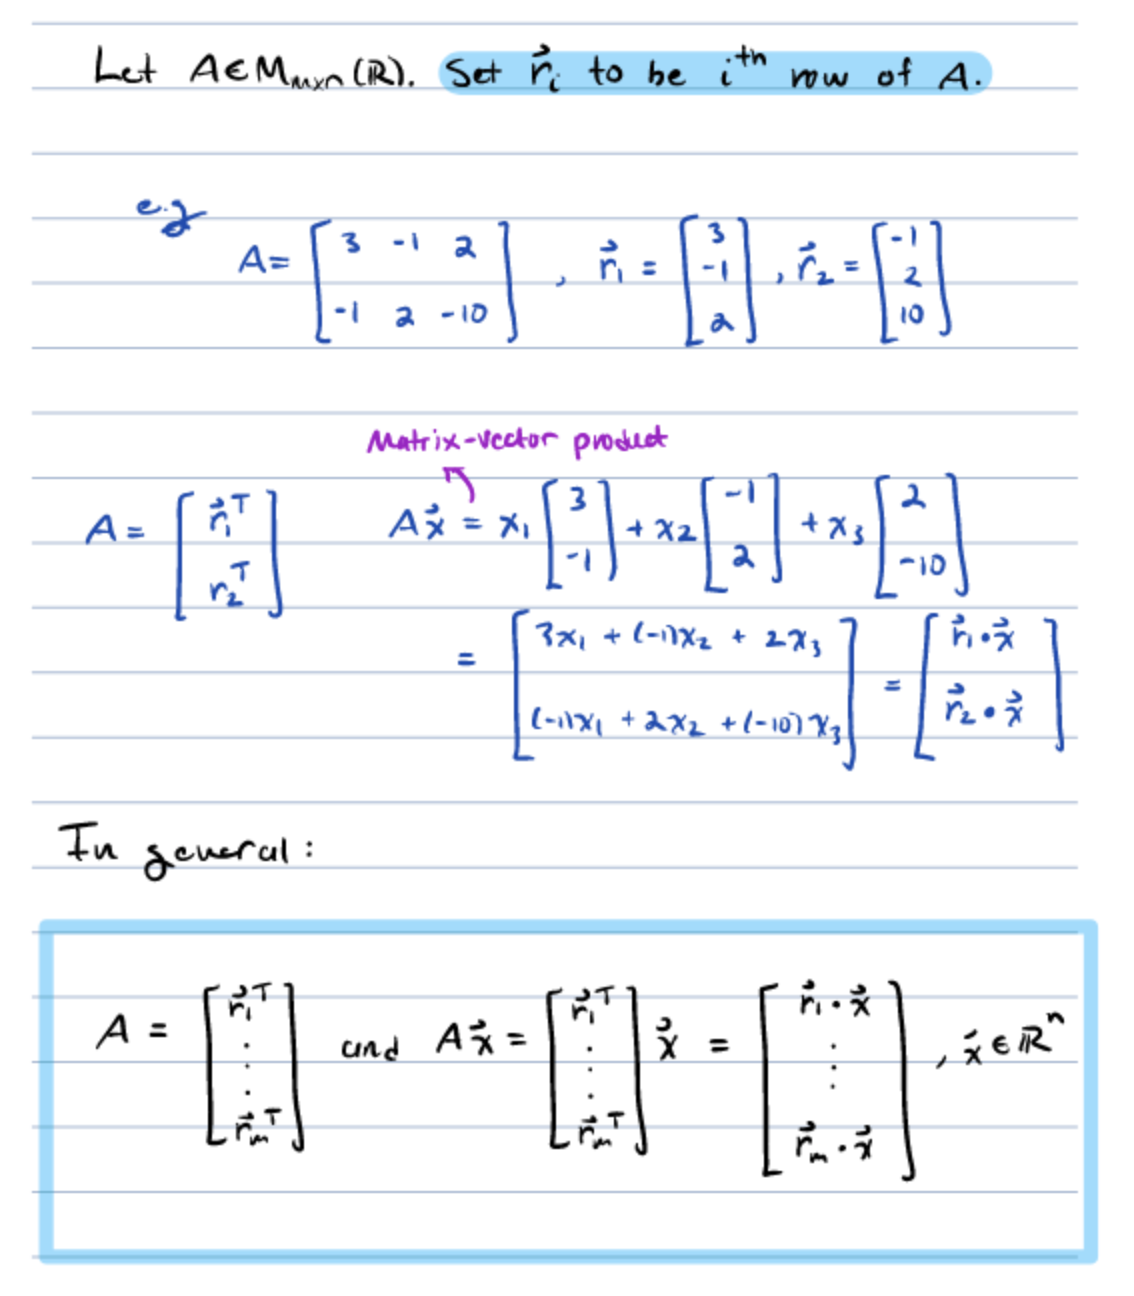 Let A∈M_{m×n}(ℝ). Set r⃗_i to be i^{th} row of A.
e.g
A = [3 -1 2; -1 2 -10], r⃗_1 = [3; -1; 2], r⃗_2 = [-1; 2; 10]
Matrix-vector product
A = [r⃗_1^T; r_2^T] Ax⃗ = x_1 [3; -1] + x_2 [-1; 2] + x_3 [2; -10]
= [3x_1 + (-1)x_2 + 2x_3; (-1)x_1 + 2x_2 + (-10)x_3] = [r⃗_1 · x⃗; r⃗_2 · x⃗]
In general:
A = [r⃗_1^T; ⋮; r⃗_m^T] and Ax⃗ = [r⃗_1^T; ⋮; r⃗_m^T] x⃗ = [r⃗_1 · x⃗; ⋮; r⃗_m · x⃗], x⃗ ∈ ℝ^n